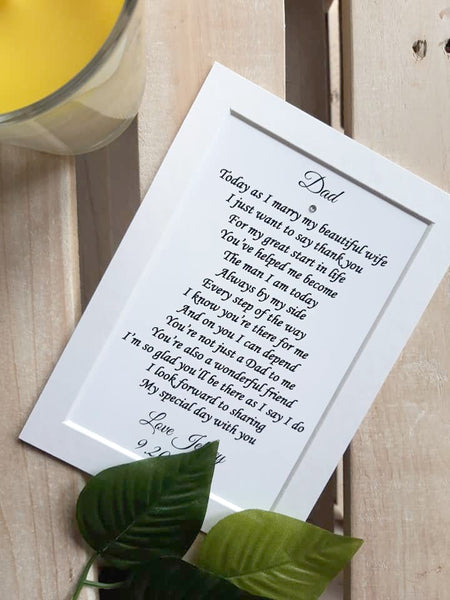 Dad
Today as I marry my beautiful wife
I just want to say thank you
For my great start in life
You've helped me become
The man I am today
Always by my side
Every step of the way
I know you're there for me
And on you I can depend
You're not just a Dad to me
You're also a wonderful friend
I'm so glad you'll be there as I say I do
I look forward to sharing
My special day with you
Love
9.20